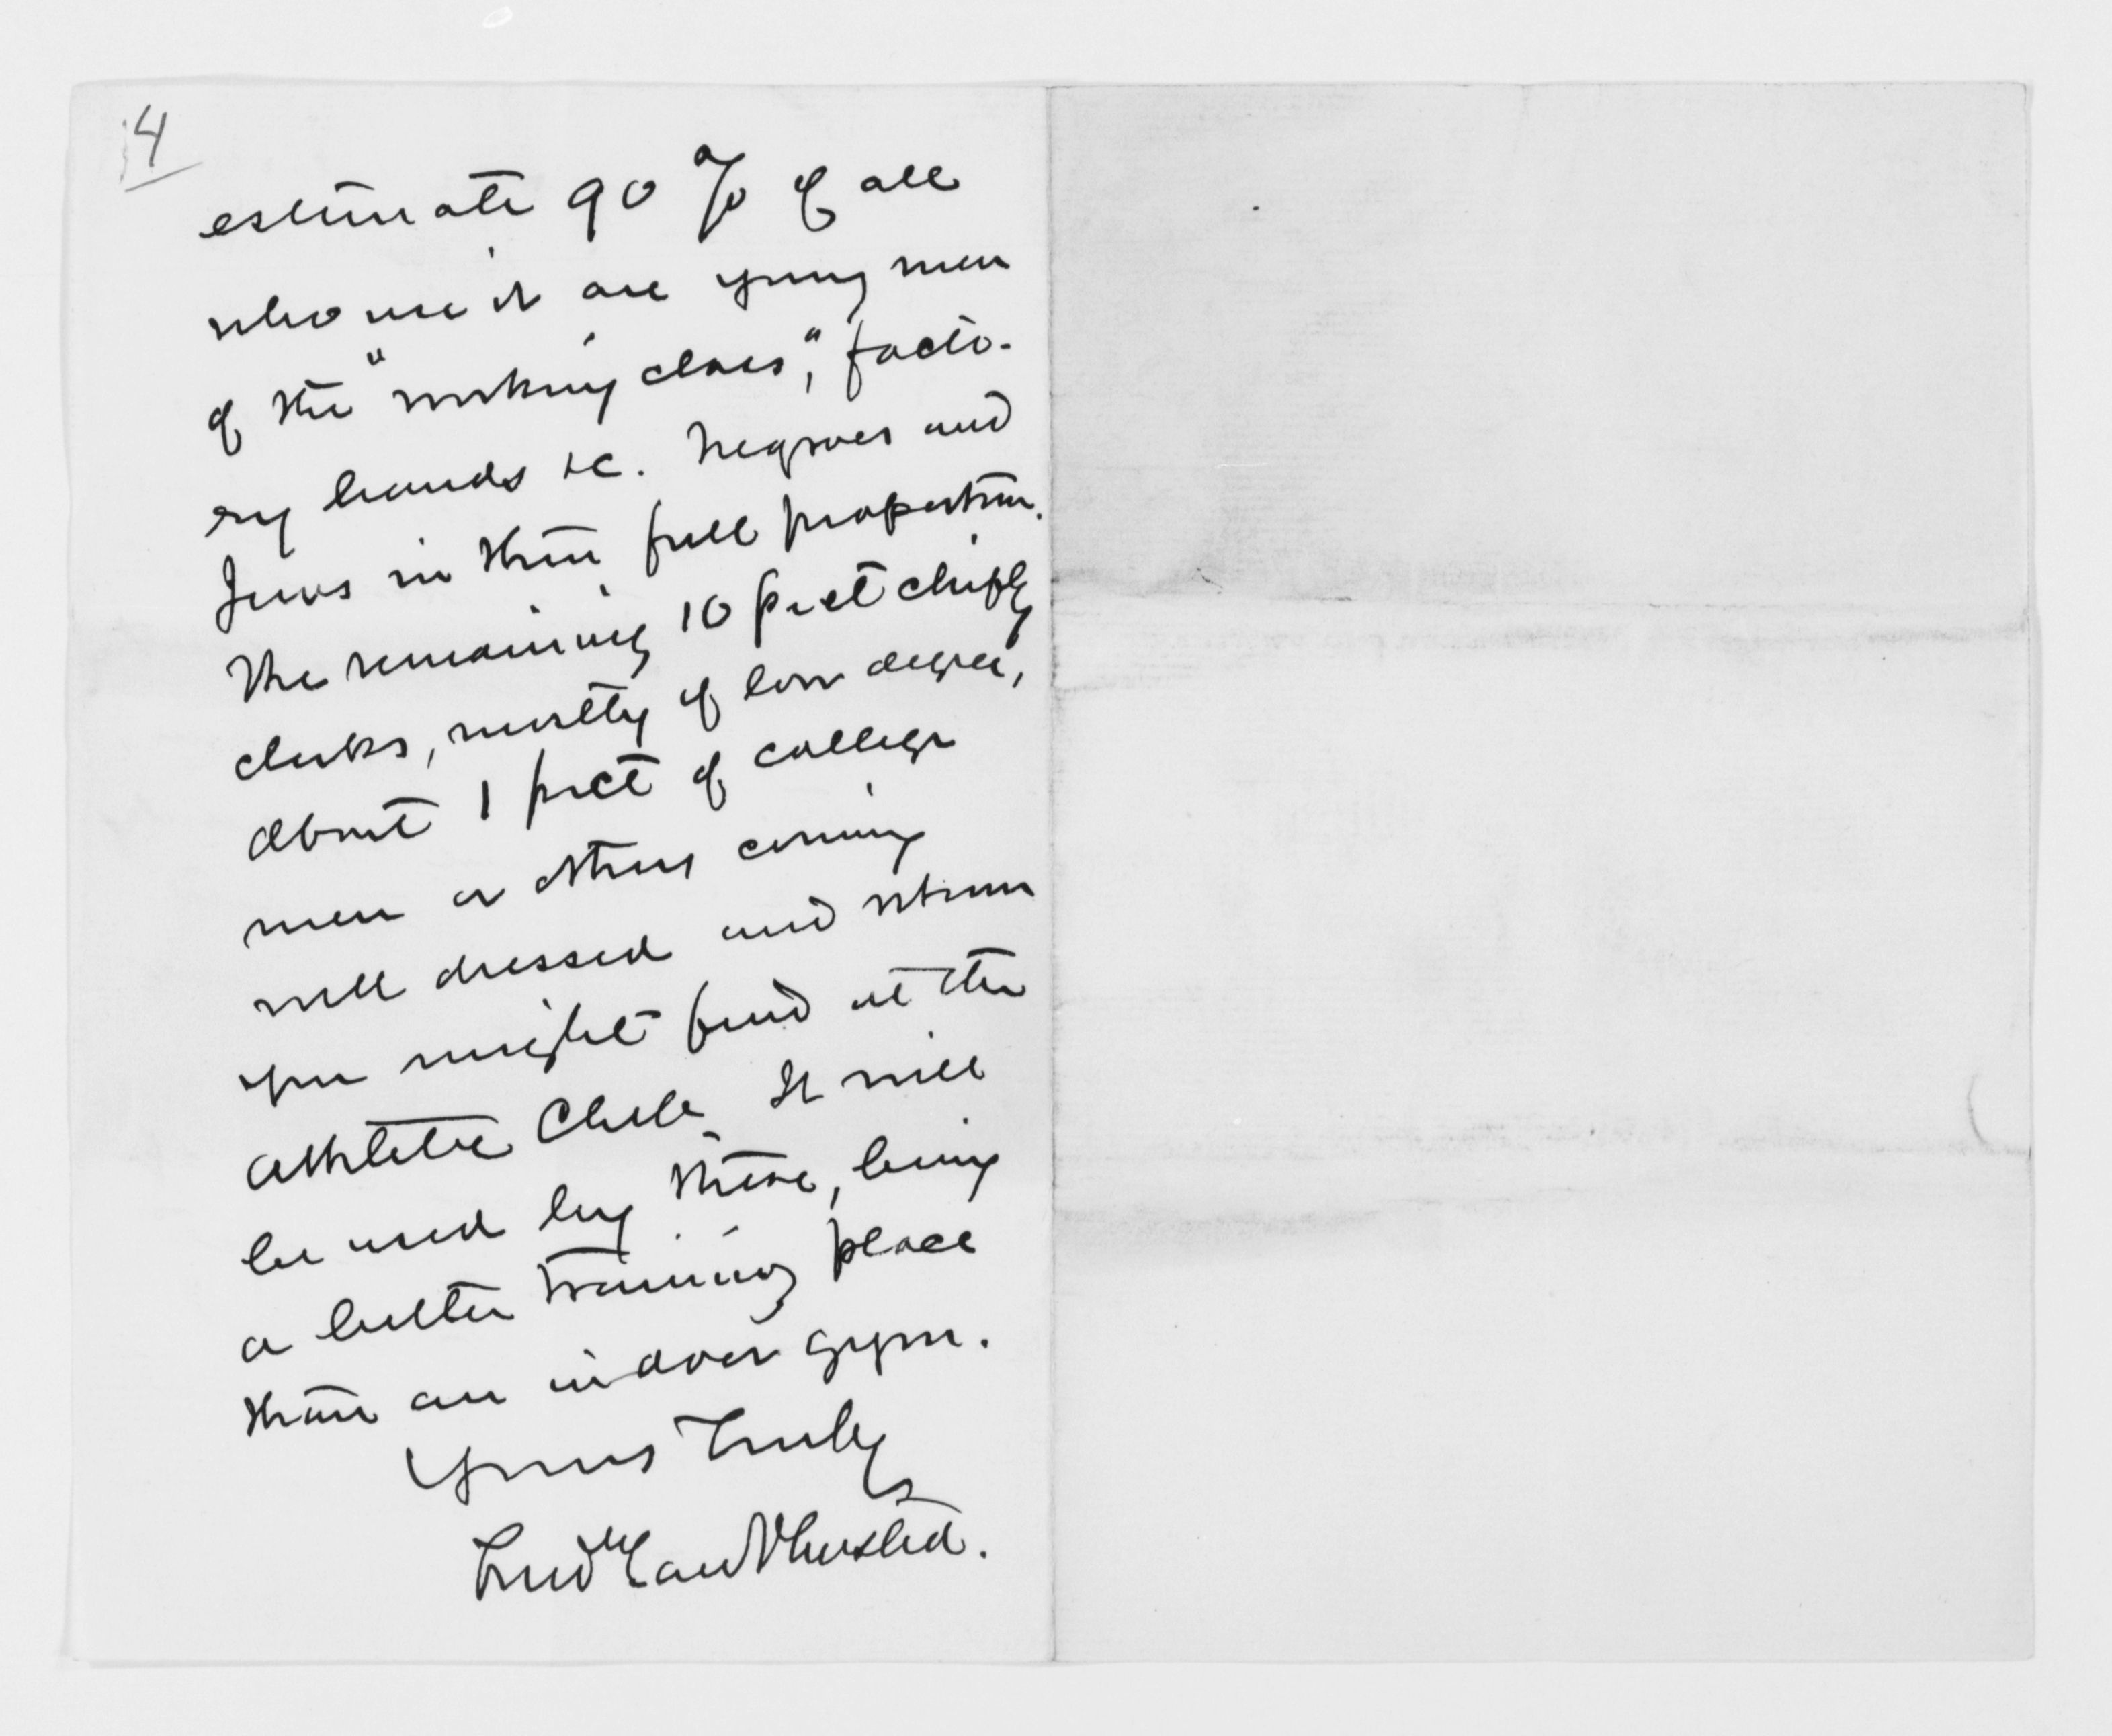 4
estimate 90 % of all
who use it are young men
of the "working class", facto-
ry hands &c. Negroes and
Jews in their full proportion.
The remaining 10 prct chiefly
clerks, mostly of low degree,
about 1 prct of college
men or others coming
well dressed and whom
you might find at the
Athletic Club. It will
be used by these, being
a better training place
than an indoor gym.
Yours Truly
Fred Law Olmsted.